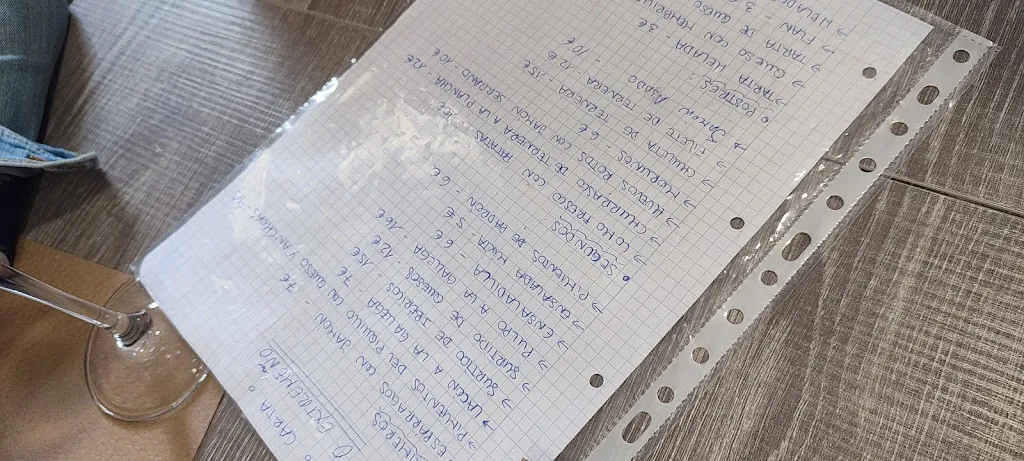 CARTA:
O EXTREMEÑO
PRIMEROS
→ ESPARRAGOS CON JAMON - 7€
→ PIMIENTOS DEL PIQUILLO CON QUESO Y ANCHOAS
→ LACON A LA GALLEGA - 7€
→ SURTIDO DE IBERICOS - 15€
→ SURTIDO DE QUESOS - 12€
→ PULPO A LA GALLEGA - 16€
→ ENSALADILLA - 6€
→ ENSALADA MIXTA - 5€
→ PIMIENTOS DE PADRÓN - 6€
• SEGUNDOS:
→ LOMO FRESCO CON PATATAS
→ CHURRASCO DE TERNERA A LA PLANCHA - 12€
→ HUEVOS ROTOS CON JAMON SERRANO 10€
→ MORUNOS - 6€
→ CHULETA DE TERNERA - 15€
→ FILETE DE TERNERA 12€
→ Jarrón Asado - 10€
• POSTRES:
→ TARTA HELADA - 3€
→ QUESO CON MEMBRILLO
→ TARTA DE QUESO
→ FLAN - 3